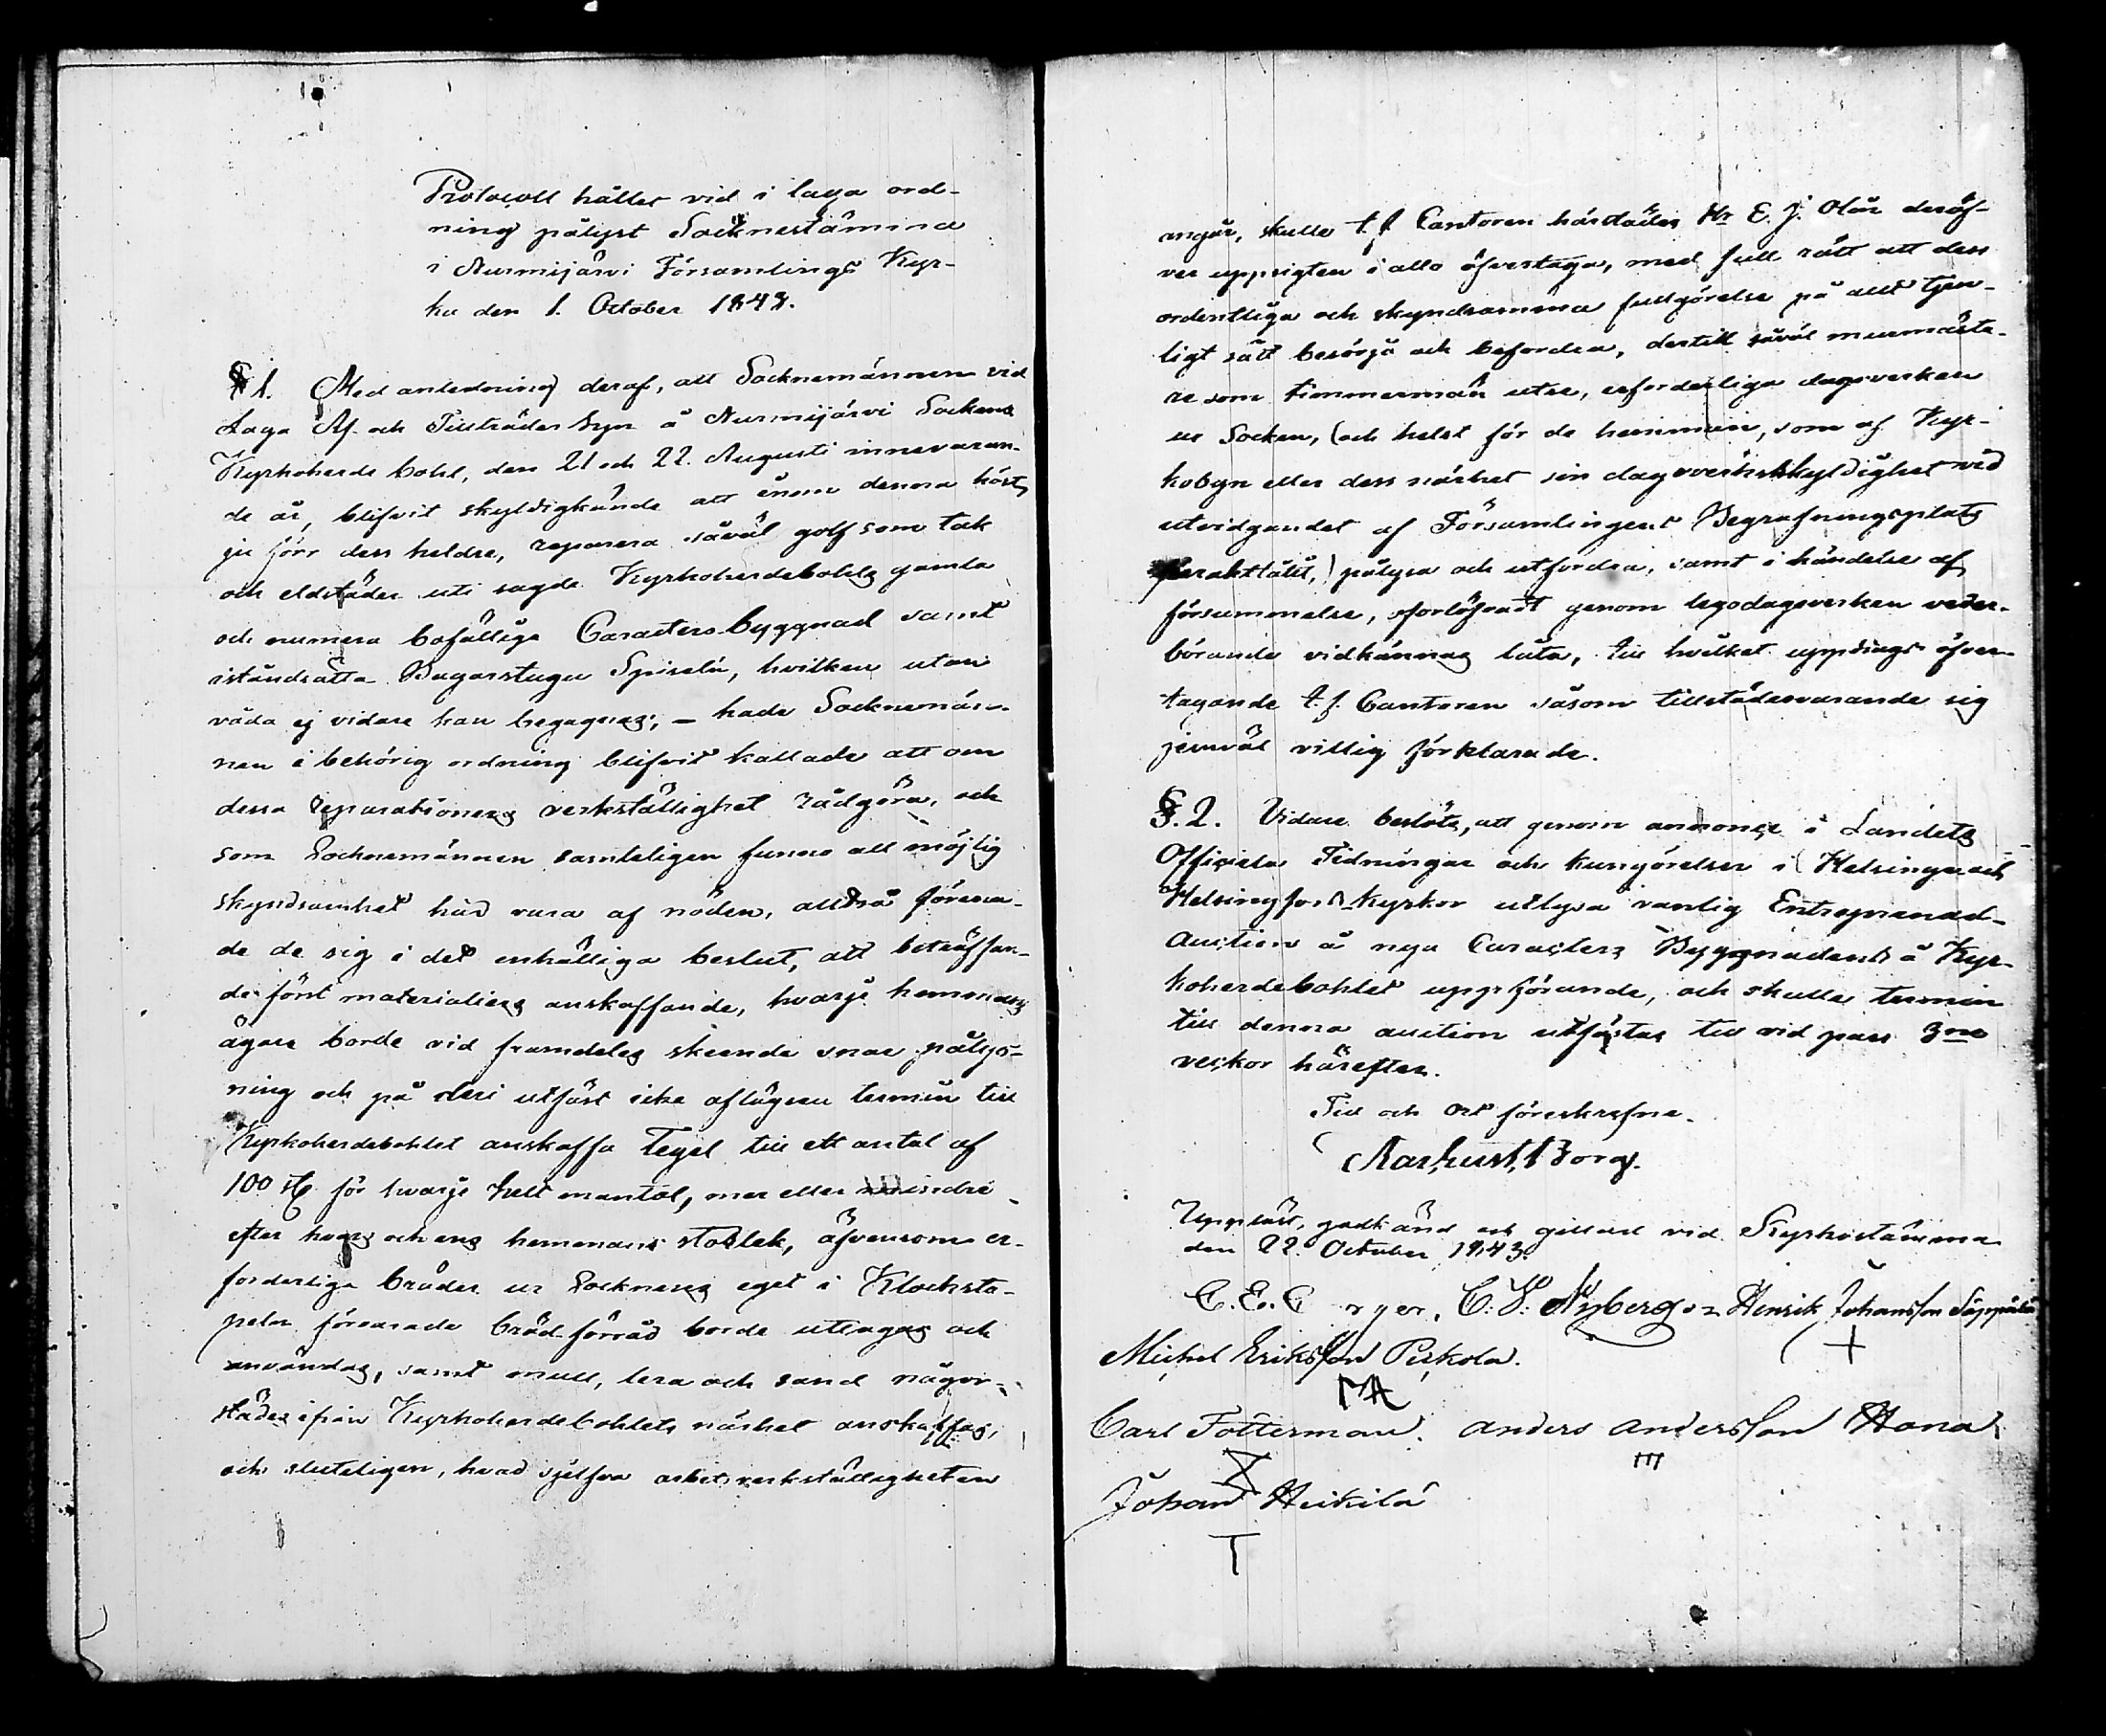 Protocoll hållet vid i laga ord-
ning pålyst Socknestämma
i Nurmijärvi Församlings Kyr-
ka den 1. October 1843.
§ 1. Med anledning deraf, att Socknemännen vid
Laga Af- och Tillträdes Syn å Nurmijärvi Sockens
Kyrkoherde bohl, den 21 och 22. Augusti innevaran-
de år, blifvit skyldigkände att innom denna höst,
ju förr dess heldre, reparera såväl golf som tak
och eldstäder uti sagde Kyrkoherdebohls gamla
och numera bofällige Caracters byggnad samt
iståndsätta Bagarstugu Spiseln, hvilken utan
våda ej vidare kan begagnas; – hade Socknemän-
nen i behörig ordning blifvit kallade att om
dessa reparationers verkställighet rådgöra, och
som Socknemännen samteligen funno all möjlig
skyndsamhet härvid vara af nöden, alltså förena-
de de sig i det enhälliga beslut, att beträffan-
de först materialiers anskaffande, hvarje hemmans
ägare borde vid framdeles skeende snar pålys-
ning och på deri utfäst icke aflägsen termin till
Kyrkoherdebohlet anskaffa Tegel till ett antal af
100 st för hvarje helt mantal, mer eller mindre
efter hvars och ens hemmans storlek, äfvensom er-
forderliga bräder ur Socknens eget i Klocksta-
peln förvarade brädförråd borde uttagas och
användas, samt mull, lera och sand någor-
städes ifrån Kyrkoherdebohlets närhet anskaffas,
och sluteligen, hvad sjelfva arbetsverkställigheten
angår, skulle t.f. Cantoren härstädes Hr E. J. Olin deröf-
ver uppsigten i allo öfvertaga, med full rätt att dess
ordentliga och skyndsamma fullgörelse på allt tjen-
ligt sätt besörja och befordra, dertill såväl murmästa-
re som timmermän utse, erforderliga dagsverken
ur Socken, (och helst för de hemman, som af Kyr-
kobyn eller dess närhet sin dagsverksskyldighet vid
utvidgandet af Församlingens Begrafningsplats
pålysa och utfordra, samt i händelse af
försummelse, oförtöfvadt genom legodagsverken veder-
börande vidkännas låta, till hvilket uppdrags öfver-
tagande t.f. Cantoren såsom tillstädesvarande sig
jemväl villig förklarade.
§. 2. Vidare beslöts, att genom annonce i Landets
Officiela Tidningar och kungörelser i Helsinge och
Helsingfors Kyrkor utlysa vanlig Entreprenad-
Auction å nya Caracters Byggnadens å Kyr-
koherdebohlet uppförande, och skulle termin
till denna auction utfästas till vid pass 3ne
veckor härefter.
Tid och Ort föreskrefne.
Borg.
Uppläst, godkänd och gillad vid Kyrkostämma
den 22. October 1843.
C. E. C C. Nyberg Henrik Johansson Seppälä
Michel Eriksson Perkola.
Carl Fotterman. Anders Andersson Hana
Johan Heikilä